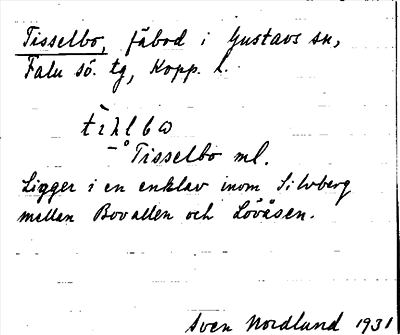 Tisselbo, fäbod i Gustavs sn,
Falu sö. tg, Kopp. l.
Tisselbo ml.
Ligger i en enklav inom Silvberg
mellan Bovallen och Lövåsen.
Sven Nordlund 1931